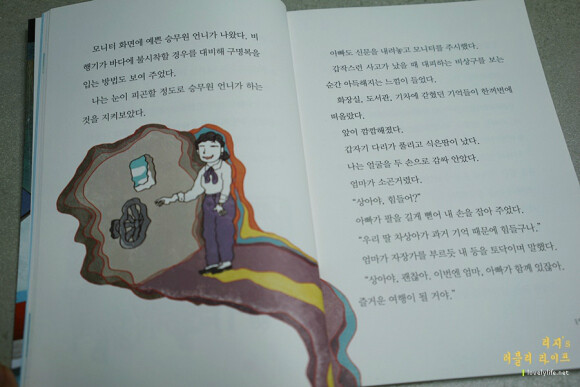 모니터 화면에 예쁜 승무원 언니가 나왔다. 비
행기가 바다에 불시착할 경우를 대비해 구명복을
입는 방법도 보여 주었다.
나는 눈이 피곤할 정도로 승무원 언니가 하는
것을 지켜보았다.
아빠도 신문을 내려놓고 모니터를 주시했다.
갑작스런 사고가 났을 때 대피하는 비상구를 보는
순간 아득해지는 느낌이 들었다.
화장실, 도서관, 기차에 갇혔던 기억들이 한꺼번에
떠올랐다.
앞이 깜깜해졌다.
갑자기 다리가 풀리고 식은땀이 났다.
나는 얼굴을 두 손으로 감싸 안았다.
엄마가 소곤거렸다.
“상아야, 힘들어?”
아빠가 팔을 길게 뻗어 내 손을 잡아 주었다.
“우리 딸 차상아가 과거 기억 때문에 힘들구나.”
엄마가 자장가를 부르듯 내 등을 토닥이며 말했다.
“상아야, 괜찮아. 이번엔 엄마, 아빠가 함께 있잖아.
즐거운 여행이 될 거야.”
리지's
러블리 라이프
lovelylife.net